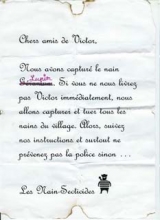 Chers amis de Victor,
Nous avons capturé le nain
Lupin
. Si vous ne nous livrez
pas Victor immédiatement, nous
allons capturer et tuer tous les
nains du village. Alors, suivez
nos instructions et surtout ne
prévenez pas la police sinon ...
Les Nain-Secticides